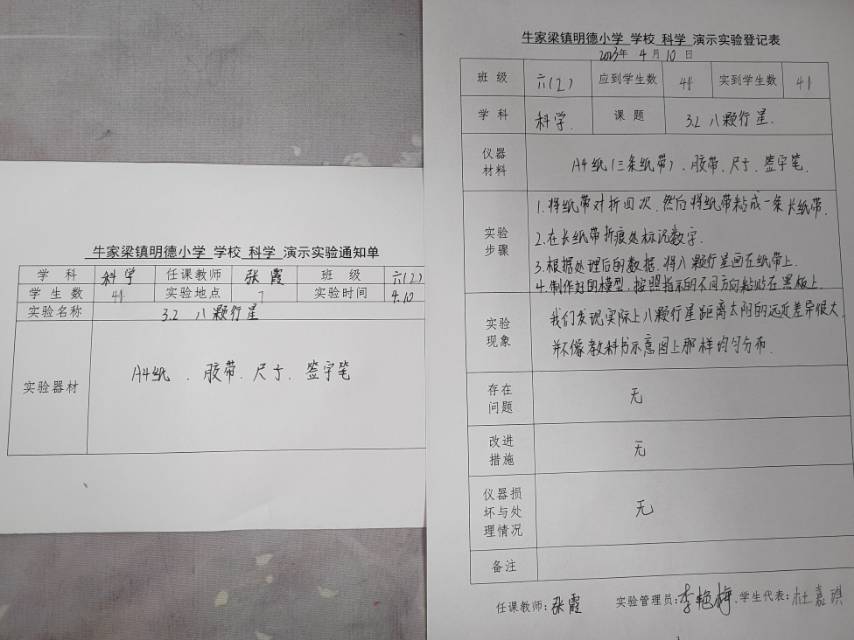 牛家梁镇明德小学 学校 科学 演示实验通知单
学 科 科学 任课教师 张霞 班 级 六(2)
学 生 数 41 实验地点 实验时间 4.10
实验名称 3.2 八颗行星
实验器材 A4纸、胶带、尺子、签字笔
牛家梁镇明德小学 学校 科学 演示实验登记表
2023年 4 月 10 日
班 级 六(2) 应到学生数 41 实到学生数 41
学 科 科学. 课 题 3.2 八颗行星.
仪器
材料
A4纸(三条纸带)、胶带、尺寸、签字笔.
实验
步骤
1.将纸带对折四次,然后将纸带粘成一条长纸带.
2.在长纸带折痕处标识数字.
3.根据处理后的数据,将八颗行星画在纸带上.
4.制作好的模型,按照指示的不同方向粘贴在黑板上.
实验
现象
我们发现实际上八颗行星距离太阳的远近差异很大,
并不像教科书示意图上那样均匀分布.
存在
问题
无
改进
措施
无
仪器损
坏与处
理情况
无
备注
任课教师:张霞 实验管理员:李艳梅 学生代表:杜嘉琪